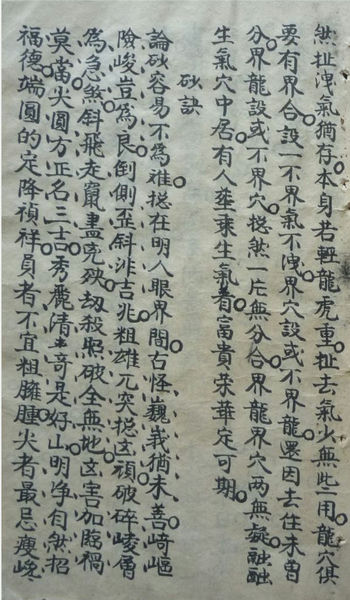 然扯洩氣猶存本身若輕龍虎重扯去氣少無些用龍穴俱
要有界合設一不界氣不洩界穴設或不界龍還因去住未曾
分界龍設或不界穴捴然一片無分合界龍界穴兩無疑融融
生氣穴中居有人葬乘生氣者富貴荣華定可期
砂訣
論砂容易不為难捴在明人眼界間古怪巍峩猶未善﨑嶇
險峻豈為良倒側歪斜非吉兆粗雄兀突捴凶頑破碎崚層
為急煞斜飛走竄盡兇殃劫殺照破全無地凶害加臨禍
莫當尖圓方正名三吉秀麗清奇是好山明净自然招
福德端圓的定降禎祥員者不宜粗臃腫尖者最忌瘦巉